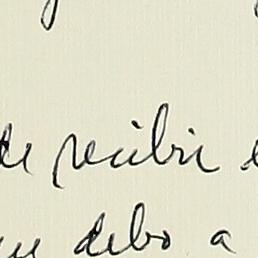 de recibir
debo a